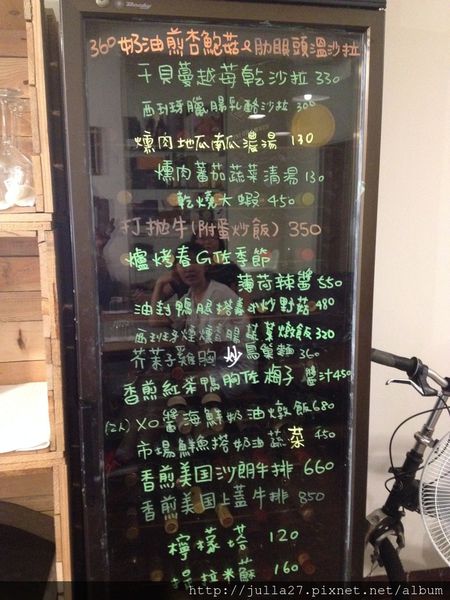 360 奶油煎杏鮑菇&肋眼頭溫沙拉
干貝蔓越莓乾沙拉 330
西班牙臘腸乳酪沙拉 300
燻肉地瓜南瓜濃湯 130
燻肉蕃茄蔬菜清湯 130
乾燒大蝦 450
打拋牛(附蛋炒飯) 350
爐烤春G佐季節
薄荷辣醬 550
油封鴨腿搭 炒野菇 480
西班牙 燻腸 燉飯 320
芥茉子雞胸 炒 麵 360
香煎紅茶鴨胸佐梅子醬汁 450
(2人) XO醬海鮮奶油燉飯 680
市場鮮魚搭奶油蔬菜 450
香煎美国沙朗牛排 660
香煎美国上蓋牛排 850
檸檬塔 120
提拉米蘇 160
http://julla27.pixnet.net/album